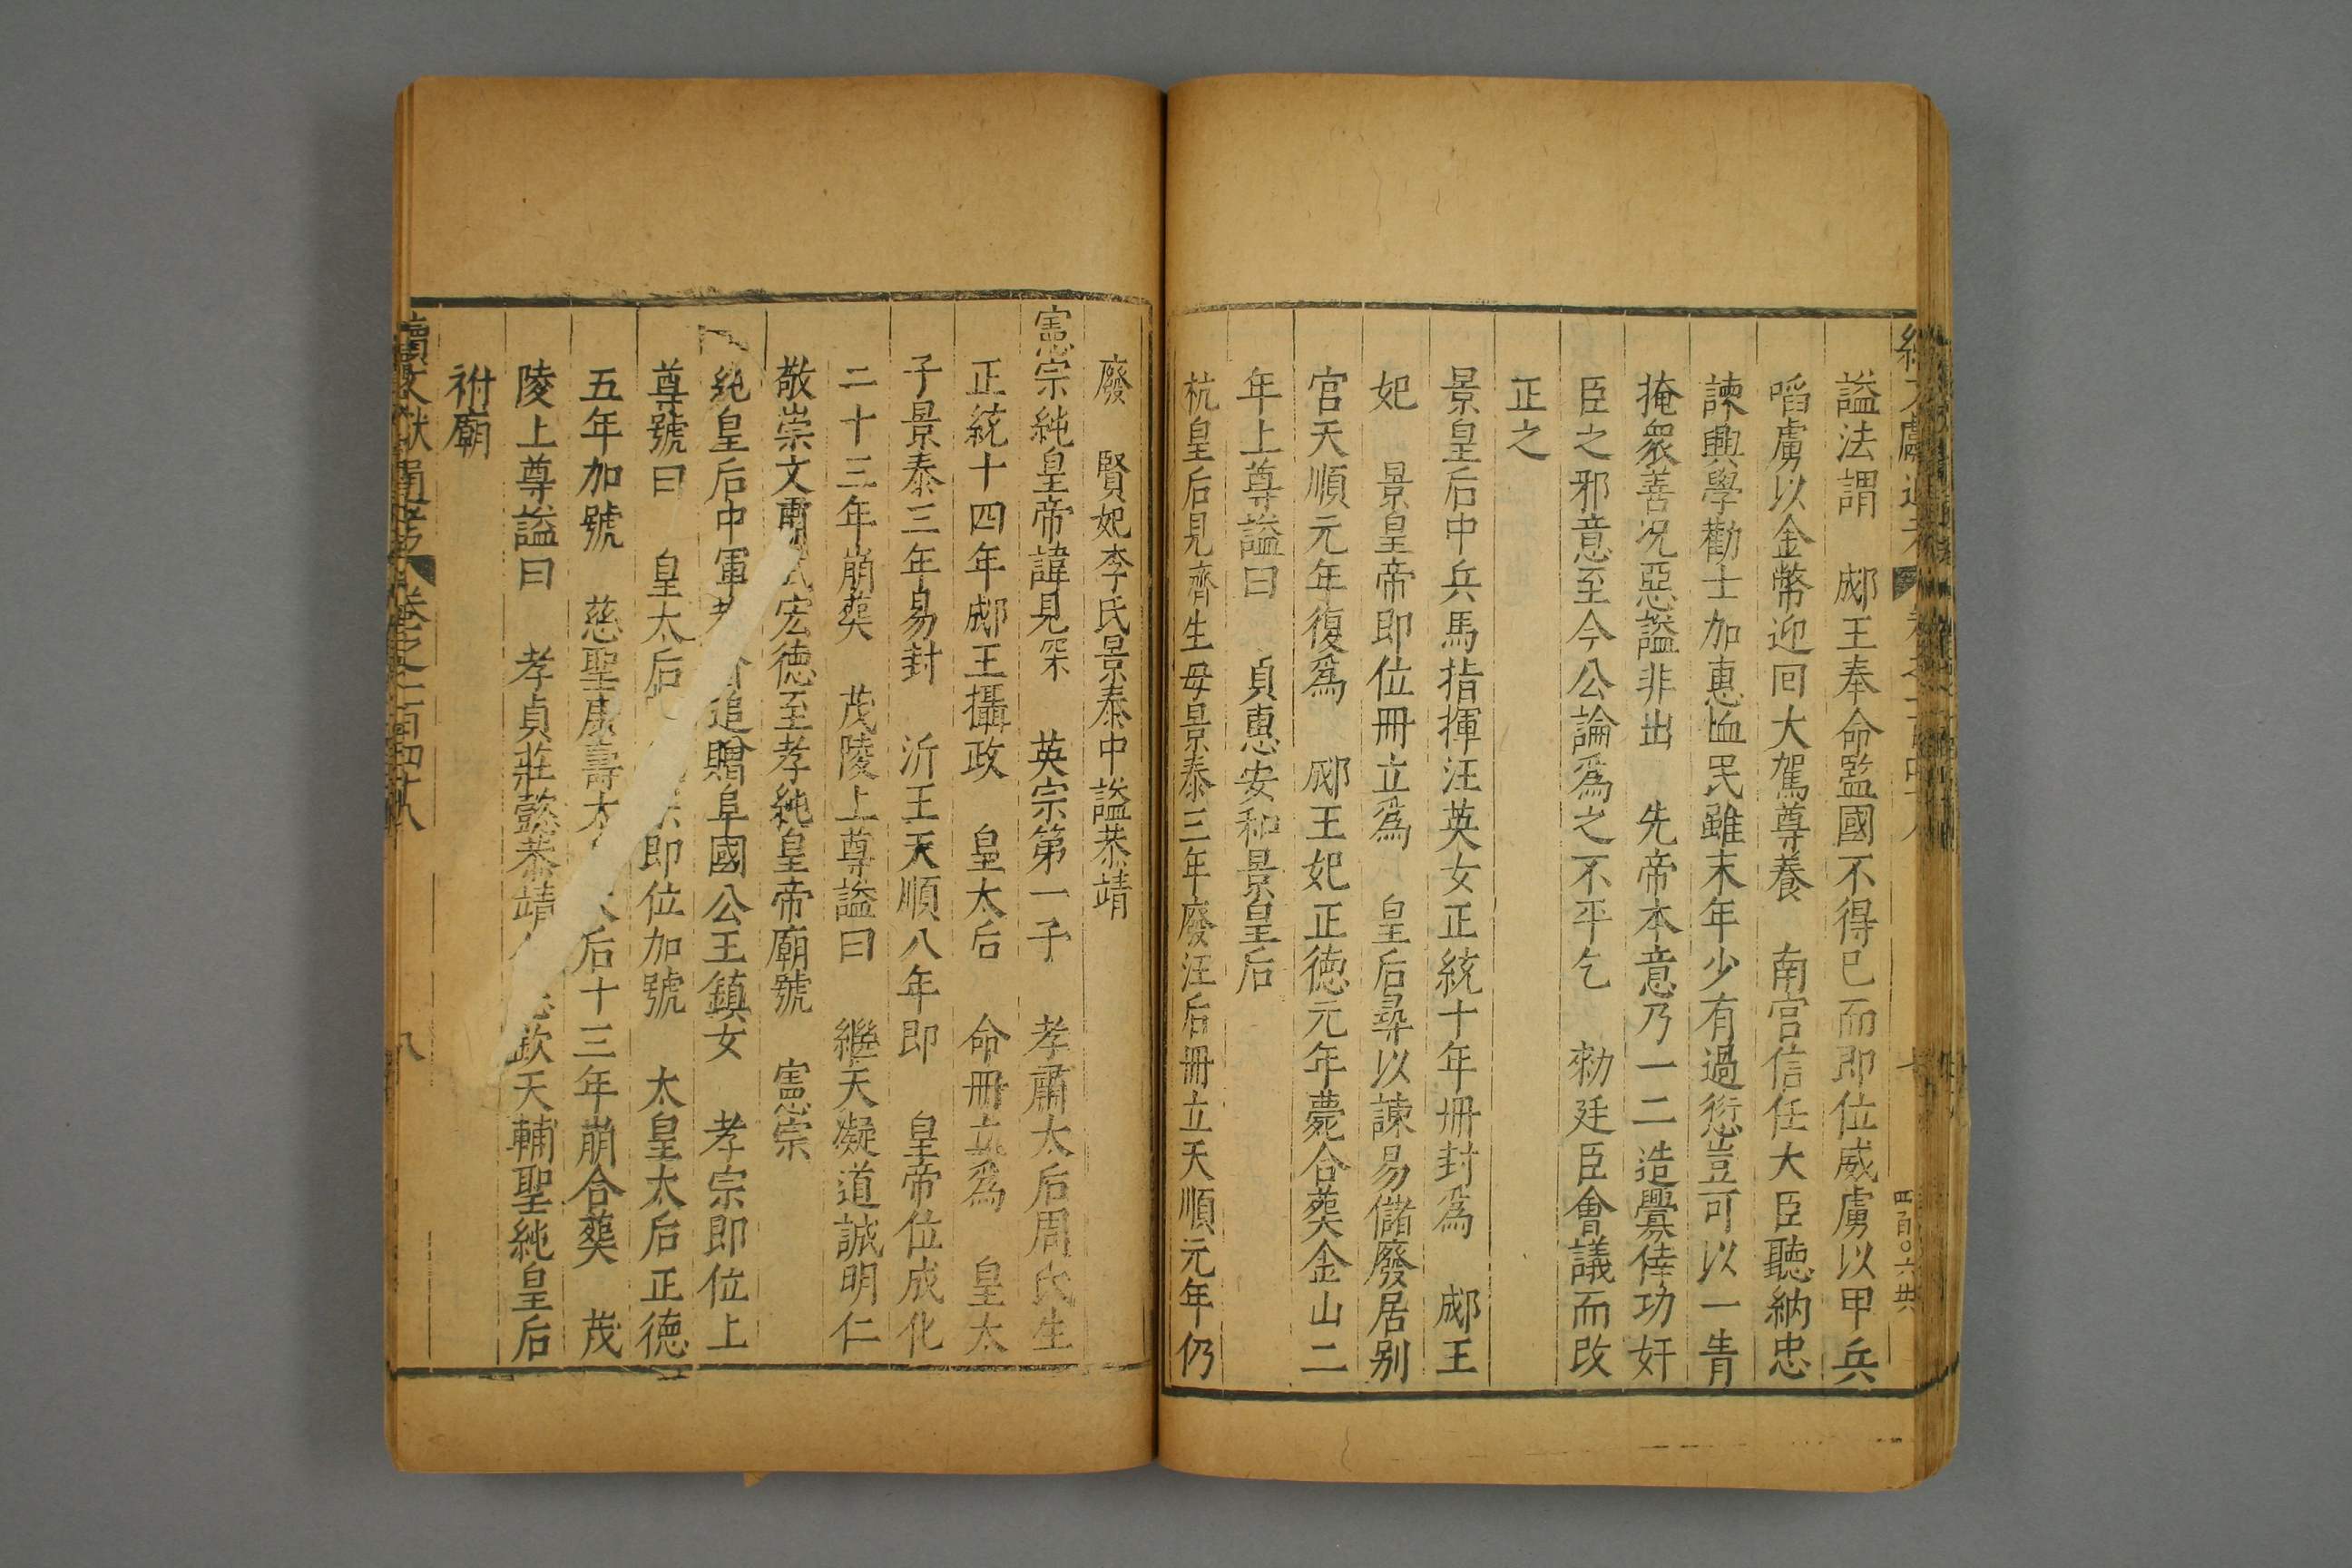 謚法謂 郕王奉命監國不得已而即位威虜以甲兵
㗖虜以金幣迎回大駕尊養 南宮信任大臣聽納忠
諫興學勸士加惠恤民雖末年少有過愆豈可以一眚
掩衆善况惡謚非出 先帝本意乃一二造釁倖功奸
臣之邪意至今公論為之不平乞 勑廷臣會議而改
正之
景皇后中兵馬指揮汪英女正統十年冊封為 郕王
妃 景皇帝即位冊立為 皇后尋以諫易儲廢居别
宮天順元年復為 郕王妃正德元年薨合葬金山二
年上尊謚曰 貞惠安和景皇后
杭皇后見濟生母景泰三年廢汪后冊立天順元年仍
廢 賢妃李氏景泰中謚恭靖
憲宗純皇帝諱見深 英宗第一子 孝肅太后周氏生
正統十四年郕王攝政 皇太后 命冊立為 皇太
子景泰三年易封 沂王天順八年即 皇帝位成化
二十三年崩葬 茂陵上尊謚曰 繼天凝道誠明仁
敬崇文肅武宏德至孝純皇帝廟號 憲宗
純皇后中軍 追贈阜國公王鎮女 孝宗即位上
尊號曰 皇太后 即位加號 太皇太后正德
五年加號 慈聖康壽太 后十三年崩合葬 茂
陵上尊謚曰 孝貞莊懿恭靖 欽天輔聖純皇后
祔廟
續文獻通考 卷之二百四十八 八
四百〇六共